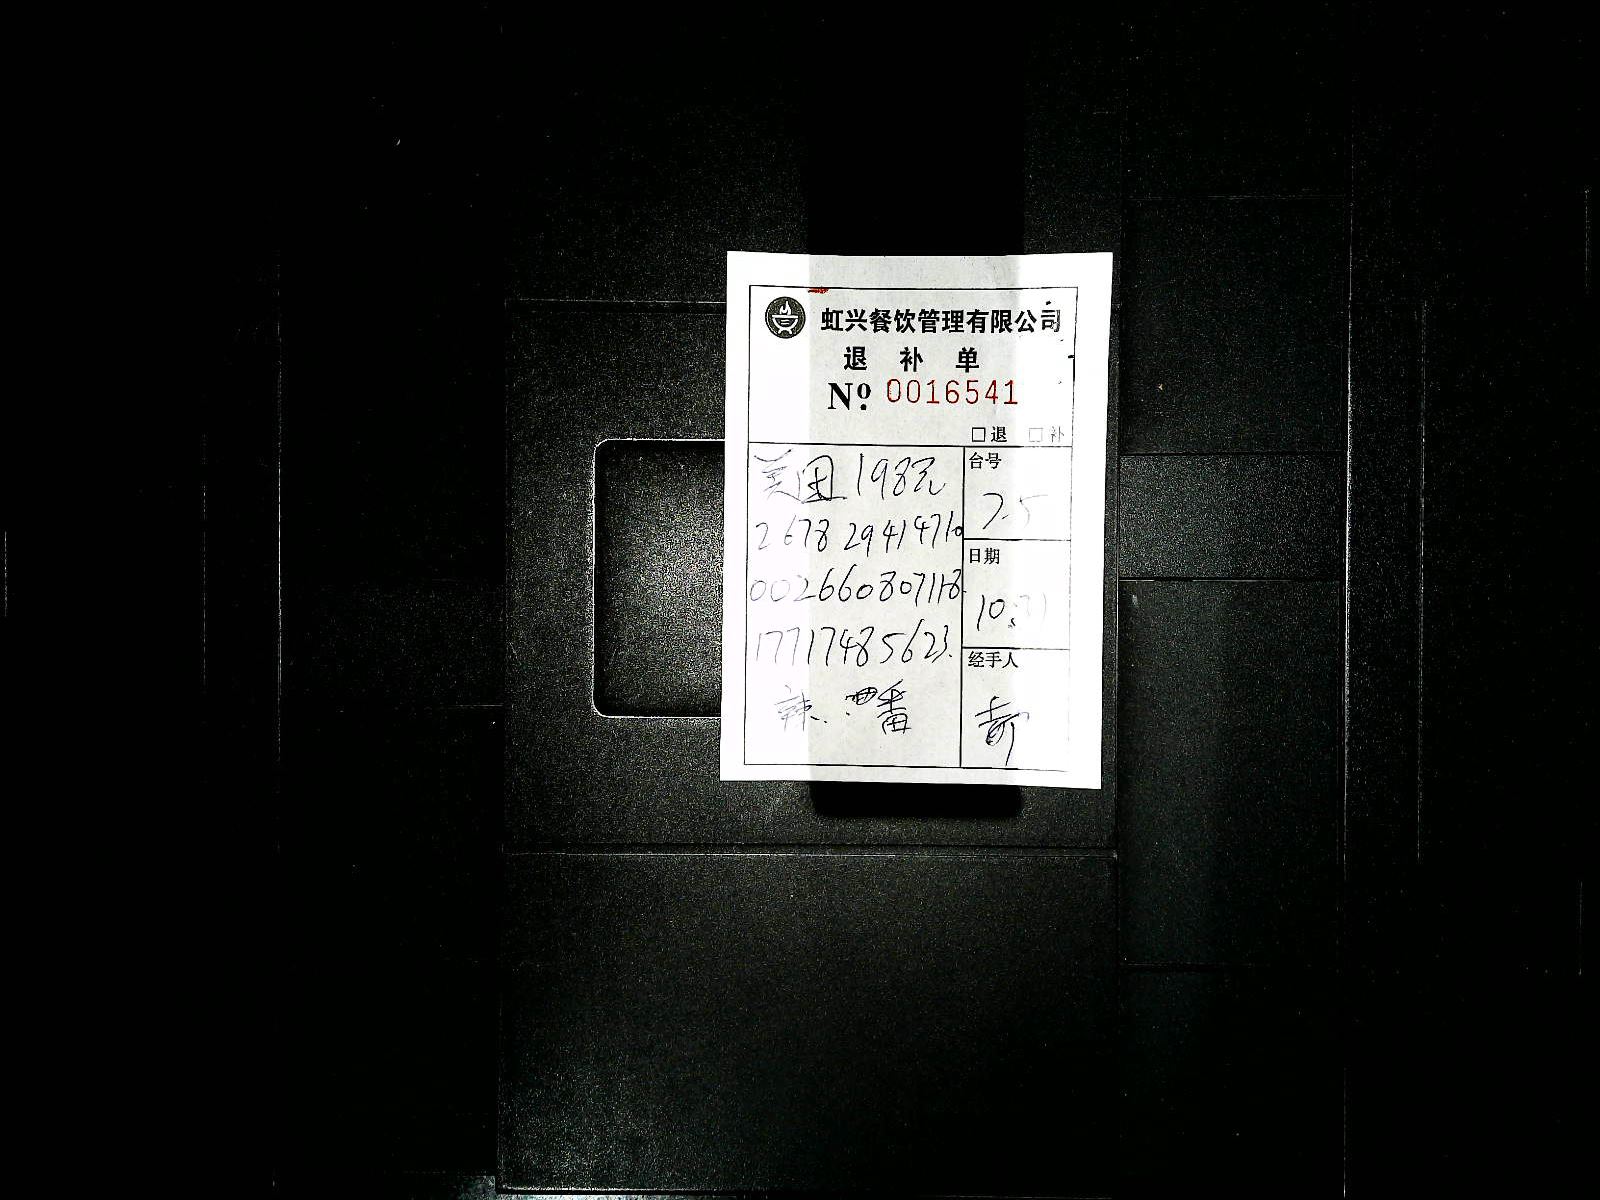 虹兴餐饮管理有限公司
退 补 单
Nº 0016541
□退 □补
美团 198元
2678 29414710
002660807118.
17717485623.
辣. 番
台号
7-5
日期
10.31
经手人